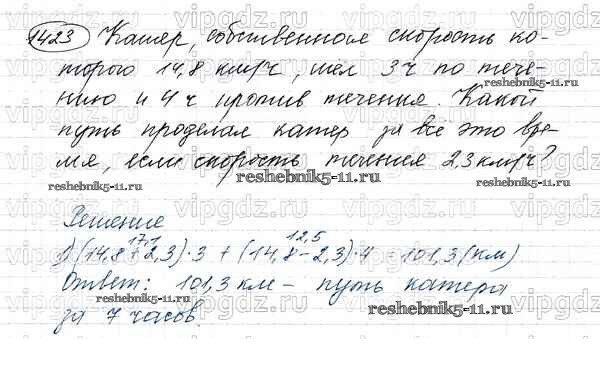 1423 Катер, собственная скорость ко-
торого 14,8 км/ч, шел 3ч по тече-
нию и 4ч против течения. Какой
путь проделал катер за все это вре-
мя, если скорость течения 2,3 км/ч?
Решение
17,1 12,5
1) (14,8+2,3)·3 + (14,8-2,3)·4 = 101,3 (км)
Ответ: 101,3 км - путь катера
за 7 часов.
vipgdz.ru
reshebnik5-11.ru
reshebnik5-11.ru
reshebnik5-11.ru
reshebnik5-11.ru
reshebnik5-11.ru
reshebnik5-11.ru